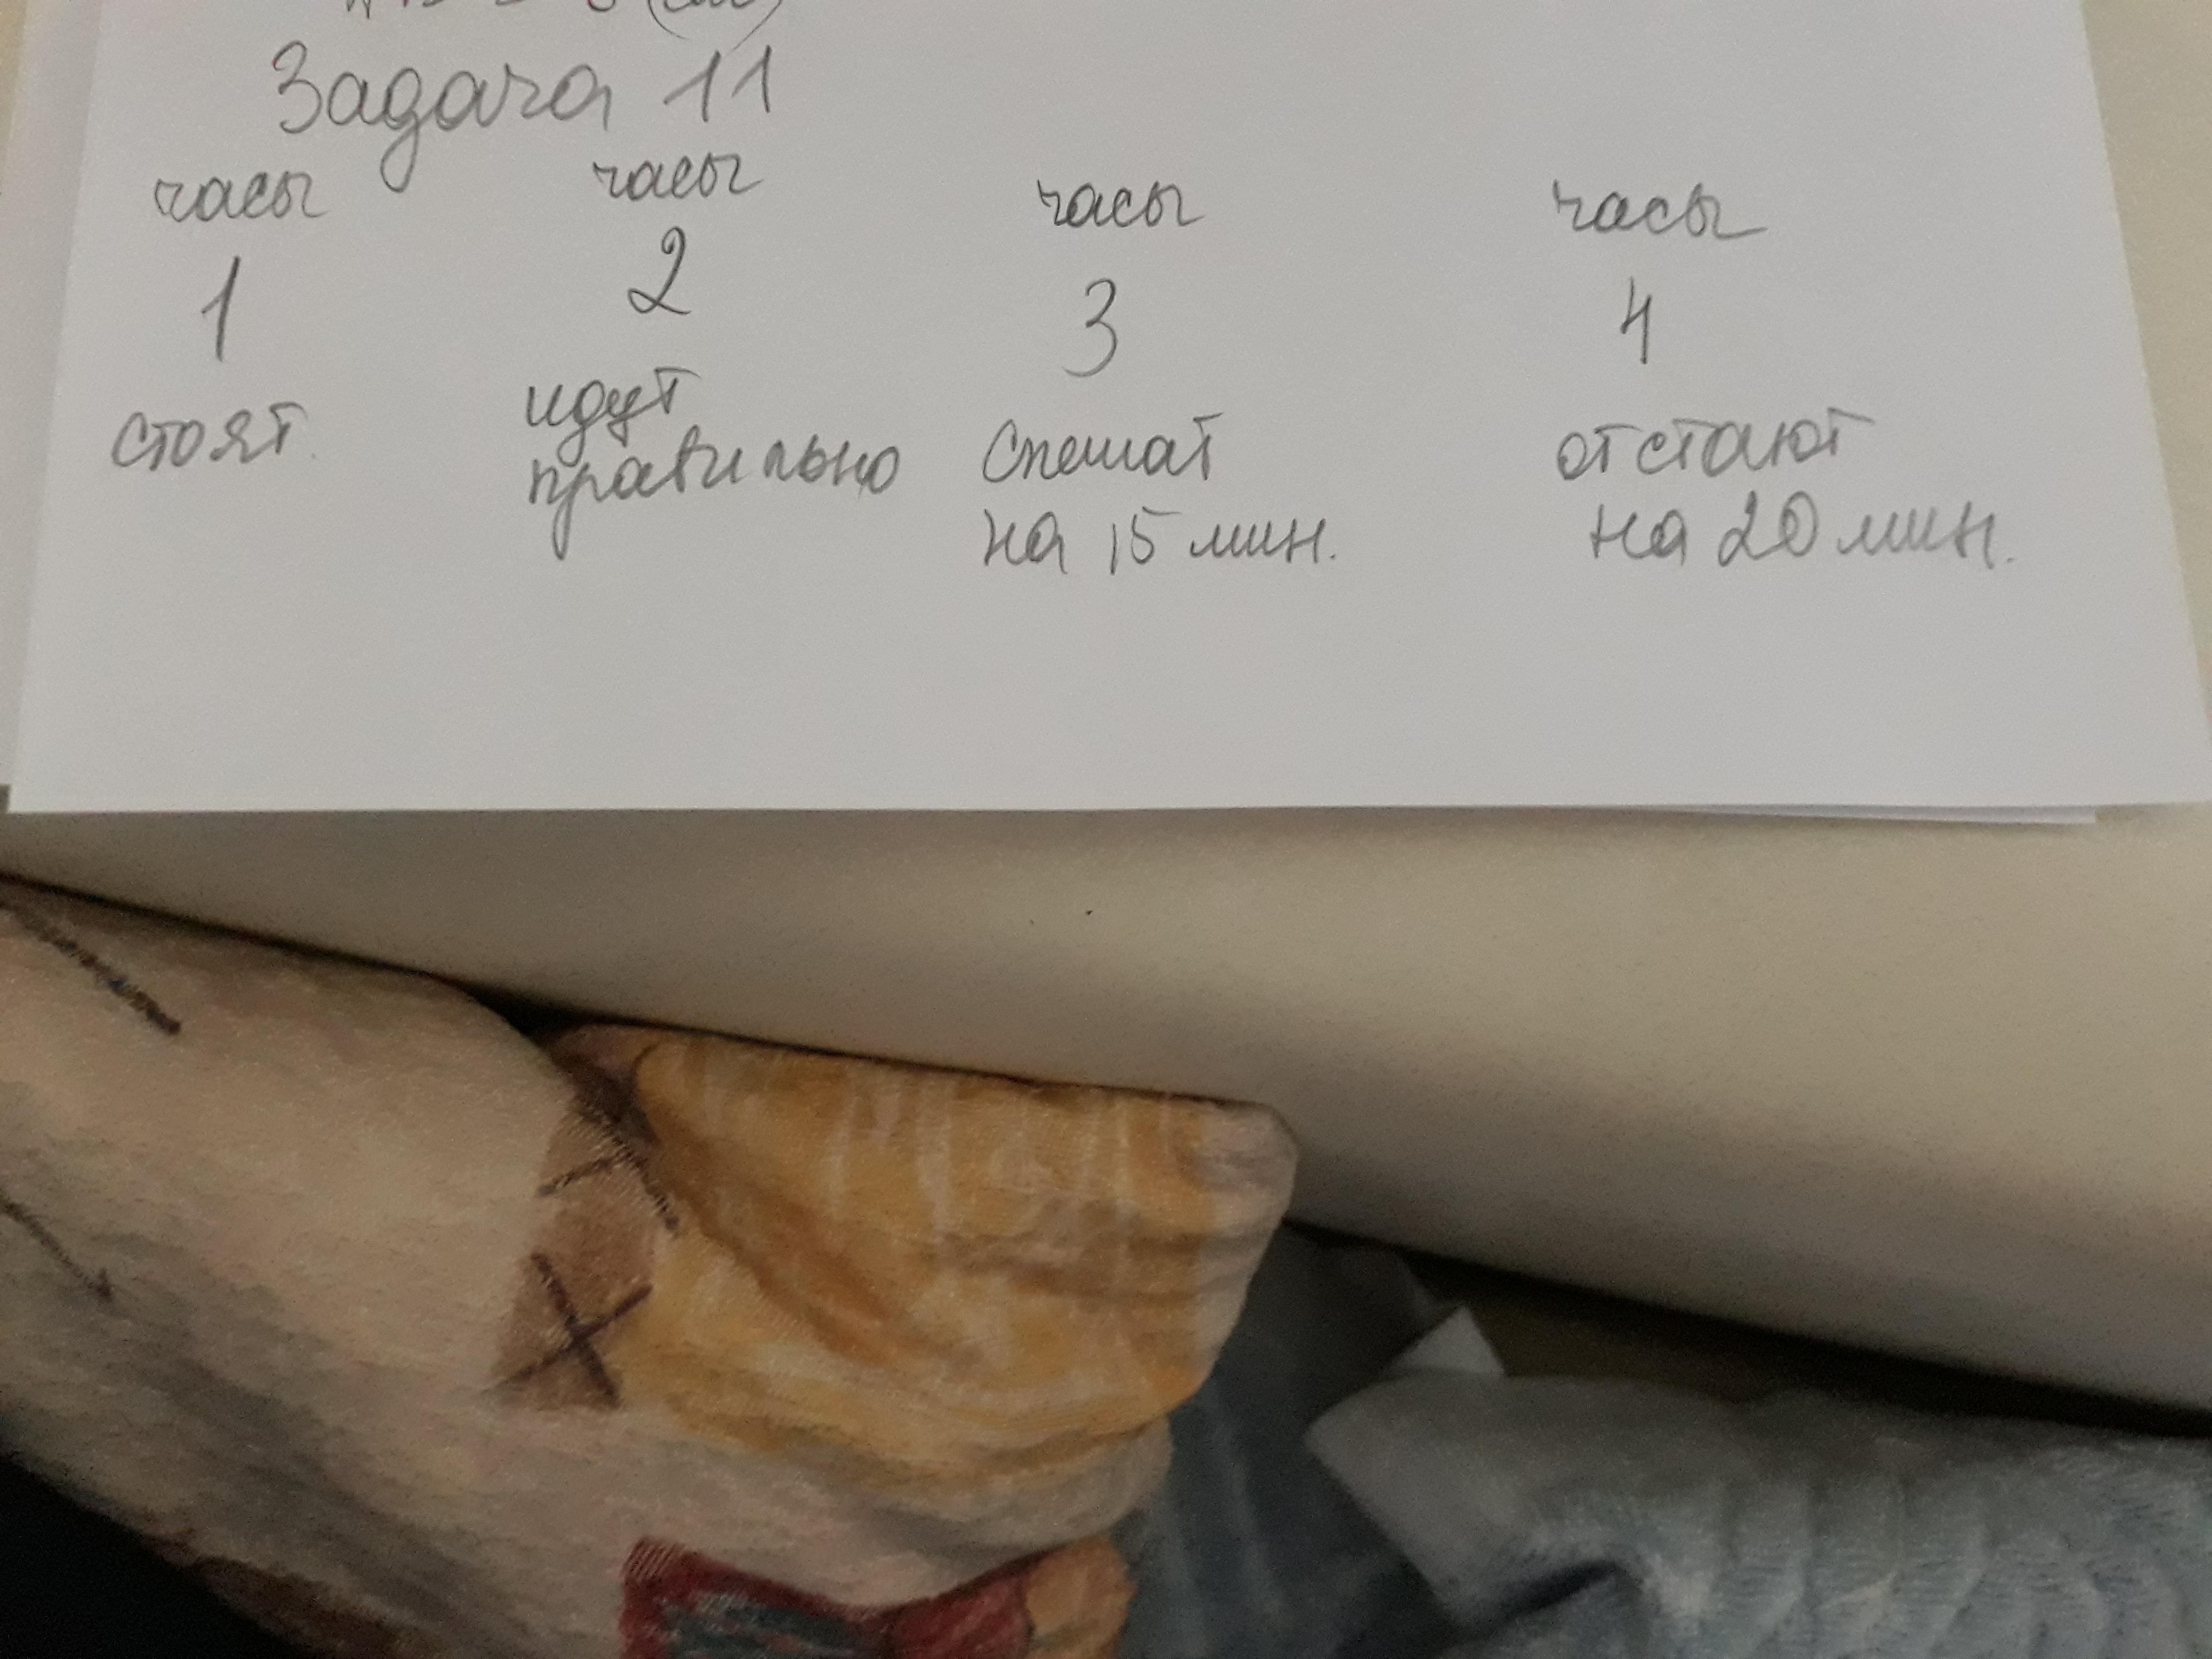 Задача 11
часы часы часы часы
1 2 3 4
стоят. идут правильно спешат на 15 мин. отстают на 20 мин.